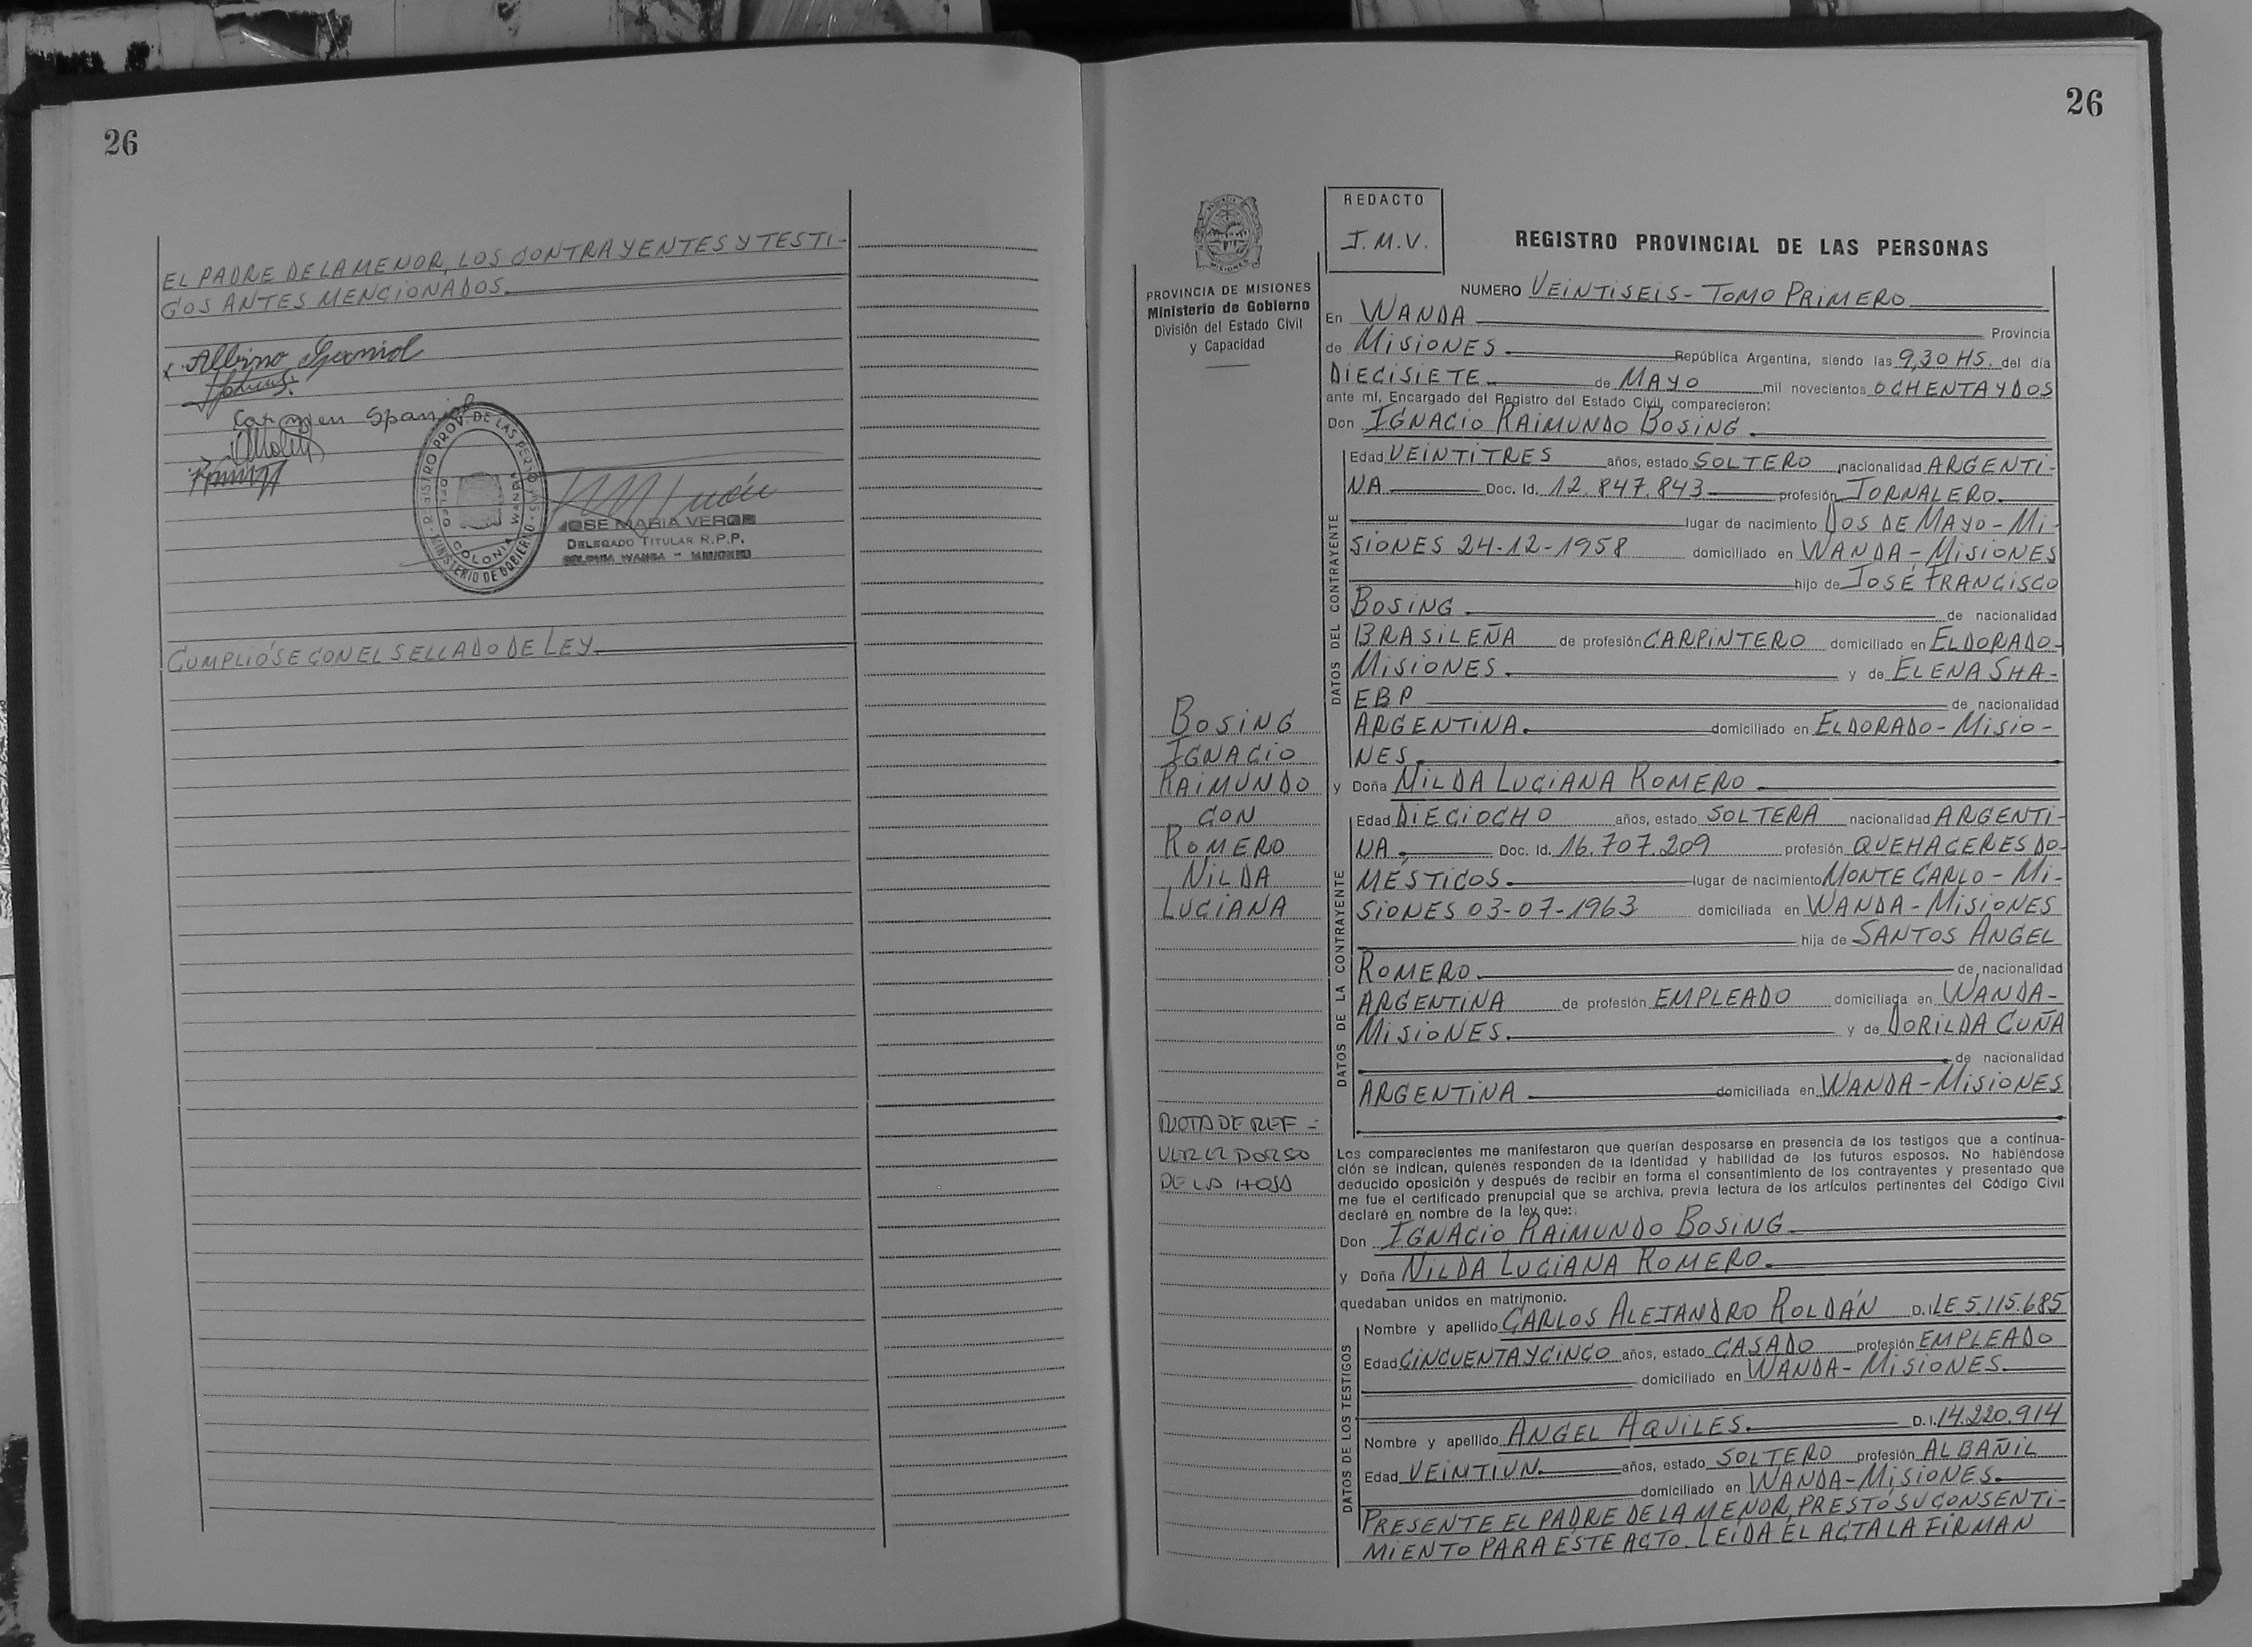 26
EL PADRE DE LA MENOR, LOS CONTRAYENTES Y TESTI-
GOS ANTES MENCIONADOS.
x Albino Spaniol
Carmen Spaniol
REGISTRO PROV. DE LAS PERSONAS
MINISTERIO DE GOBIERNO
DELEG. COLONIA WANDA
JOSE MARIA VERON
DELEGADO TITULAR R.P.P.
COLONIA WANDA - MISIONES
CUMPLIÓSE CON EL SELLADO DE LEY
26
PROVINCIA DE MISIONES
Ministerio de Gobierno
División del Estado Civil
y Capacidad
REDACTO
J.M.V.
REGISTRO PROVINCIAL DE LAS PERSONAS
NUMERO VEINTISEIS - TOMO PRIMERO
En WANDA Provincia
de MISIONES República Argentina, siendo las 9,30 HS. del día
DIECISIETE de MAYO mil novecientos OCHENTA Y DOS
ante mí, Encargado del Registro del Estado Civil, comparecieron:
Don IGNACIO RAIMUNDO BOSING
DATOS DEL CONTRAYENTE
Edad VEINTITRES años, estado SOLTERO nacionalidad ARGENTI-
NA Doc. Id. 12.847.843 profesión JORNALERO
lugar de nacimiento DOS DE MAYO - MI-
SIONES 24-12-1958 domiciliado en WANDA - MISIONES
hijo de JOSÉ FRANCISCO
BOSING de nacionalidad
BRASILEÑA de profesión CARPINTERO domiciliado en ELDORADO-
MISIONES y de ELENA SHA-
EBP de nacionalidad
ARGENTINA domiciliado en ELDORADO - MISIO-
NES
BOSING
IGNACIO
RAIMUNDO
CON
ROMERO
NILDA
LUCIANA
y Doña NILDA LUCIANA ROMERO
DATOS DE LA CONTRAYENTE
Edad DIECIOCHO años, estado SOLTERA nacionalidad ARGENTI-
NA Doc. Id. 16.707.209 profesión QUEHACERES DO-
MÉSTICOS lugar de nacimiento MONTE CARLO - MI-
SIONES 03-07-1963 domiciliada en WANDA - MISIONES
hija de SANTOS ANGEL
ROMERO de nacionalidad
ARGENTINA de profesión EMPLEADO domiciliada en WANDA-
MISIONES y de DORILDA CUÑA
de nacionalidad
ARGENTINA domiciliada en WANDA - MISIONES
NOTA DE REF -
VER EL DORSO
DE LA HOJA
Los comparecientes me manifestaron que querían desposarse en presencia de los testigos que a continua-
ción se indican, quienes responden de la identidad y habilidad de los futuros esposos. No habiéndose
deducido oposición y después de recibir en forma el consentimiento de los contrayentes y presentado que
me fue el certificado prenupcial que se archiva, previa lectura de los artículos pertinentes del Código Civil
declaré en nombre de la ley que:
Don IGNACIO RAIMUNDO BOSING
y Doña NILDA LUCIANA ROMERO
quedaban unidos en matrimonio.
DATOS DE LOS TESTIGOS
Nombre y apellido CARLOS ALEJANDRO ROLDÁN D.I. LE 5.115.685
Edad CINCUENTA Y CINCO años, estado CASADO profesión EMPLEADO
domiciliado en WANDA - MISIONES.
Nombre y apellido ANGEL AQUILES. D.I. 14.220.914
Edad VEINTIUN años, estado SOLTERO profesión ALBAÑIL
domiciliado en WANDA - MISIONES
PRESENTE EL PADRE DE LA MENOR, PRESTÓ SU CONSENTI-
MIENTO PARA ESTE ACTO. LEÍDA EL ACTA LA FIRMAN